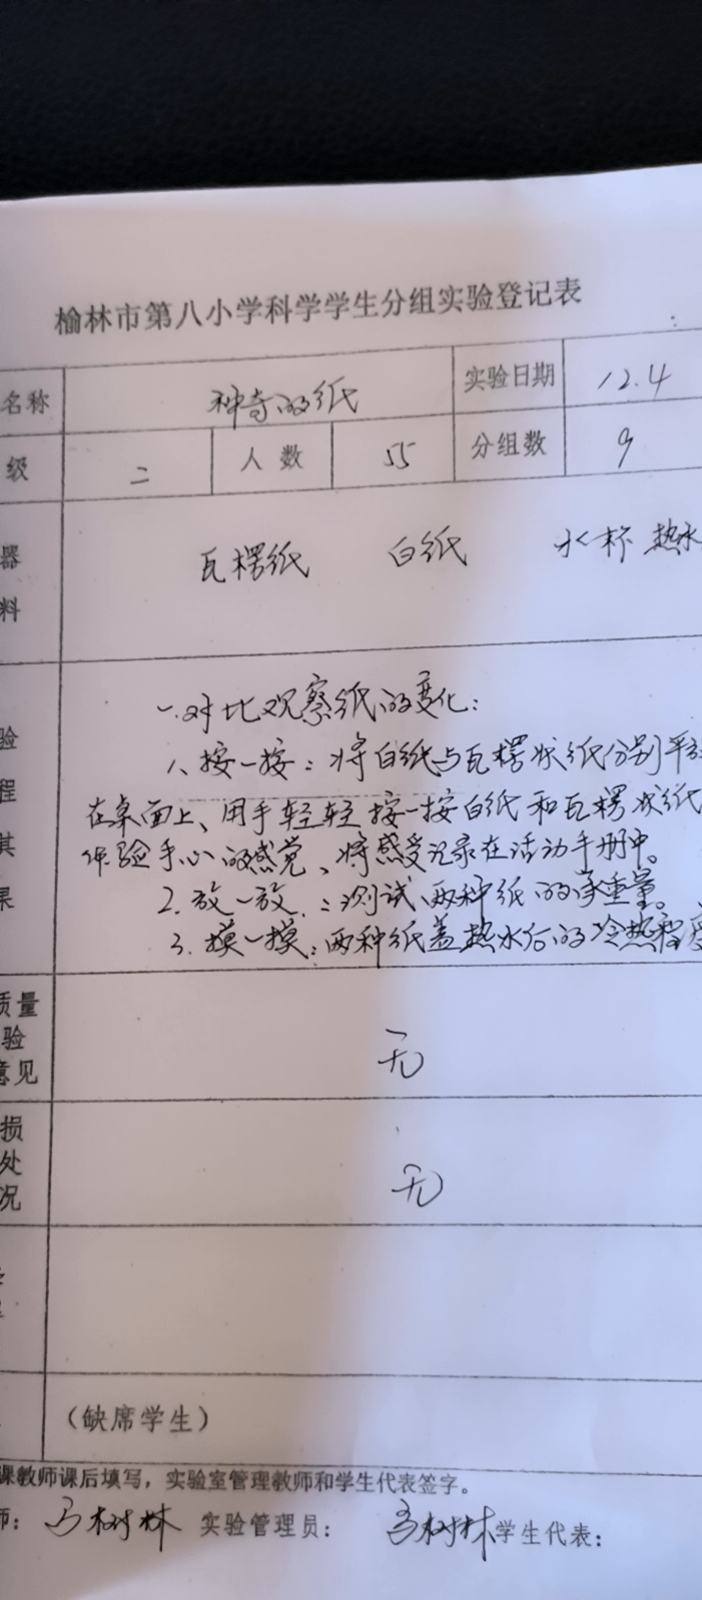 榆林市第八小学科学学生分组实验登记表
名称 神奇的纸 实验日期 12.4
级 二 人数 55 分组数 9
器 瓦楞纸 白纸 水杯 热水
料
一.对比观察纸的变化:
验 1、按一按:将白纸与瓦楞状纸分别平放
程 在桌面上、用手轻轻按一按白纸和瓦楞状纸
其 体验手心的感觉、将感受记录在活动手册中。
果 2.放一放.:测试两种纸的承重量。
3.摸一摸:两种纸盖热水后的冷热程度
质量
验 无
意见
损
处 无
况
(缺席学生)
课教师课后填写,实验室管理教师和学生代表签字。
师: 马树林 实验管理员: 马树林 学生代表: